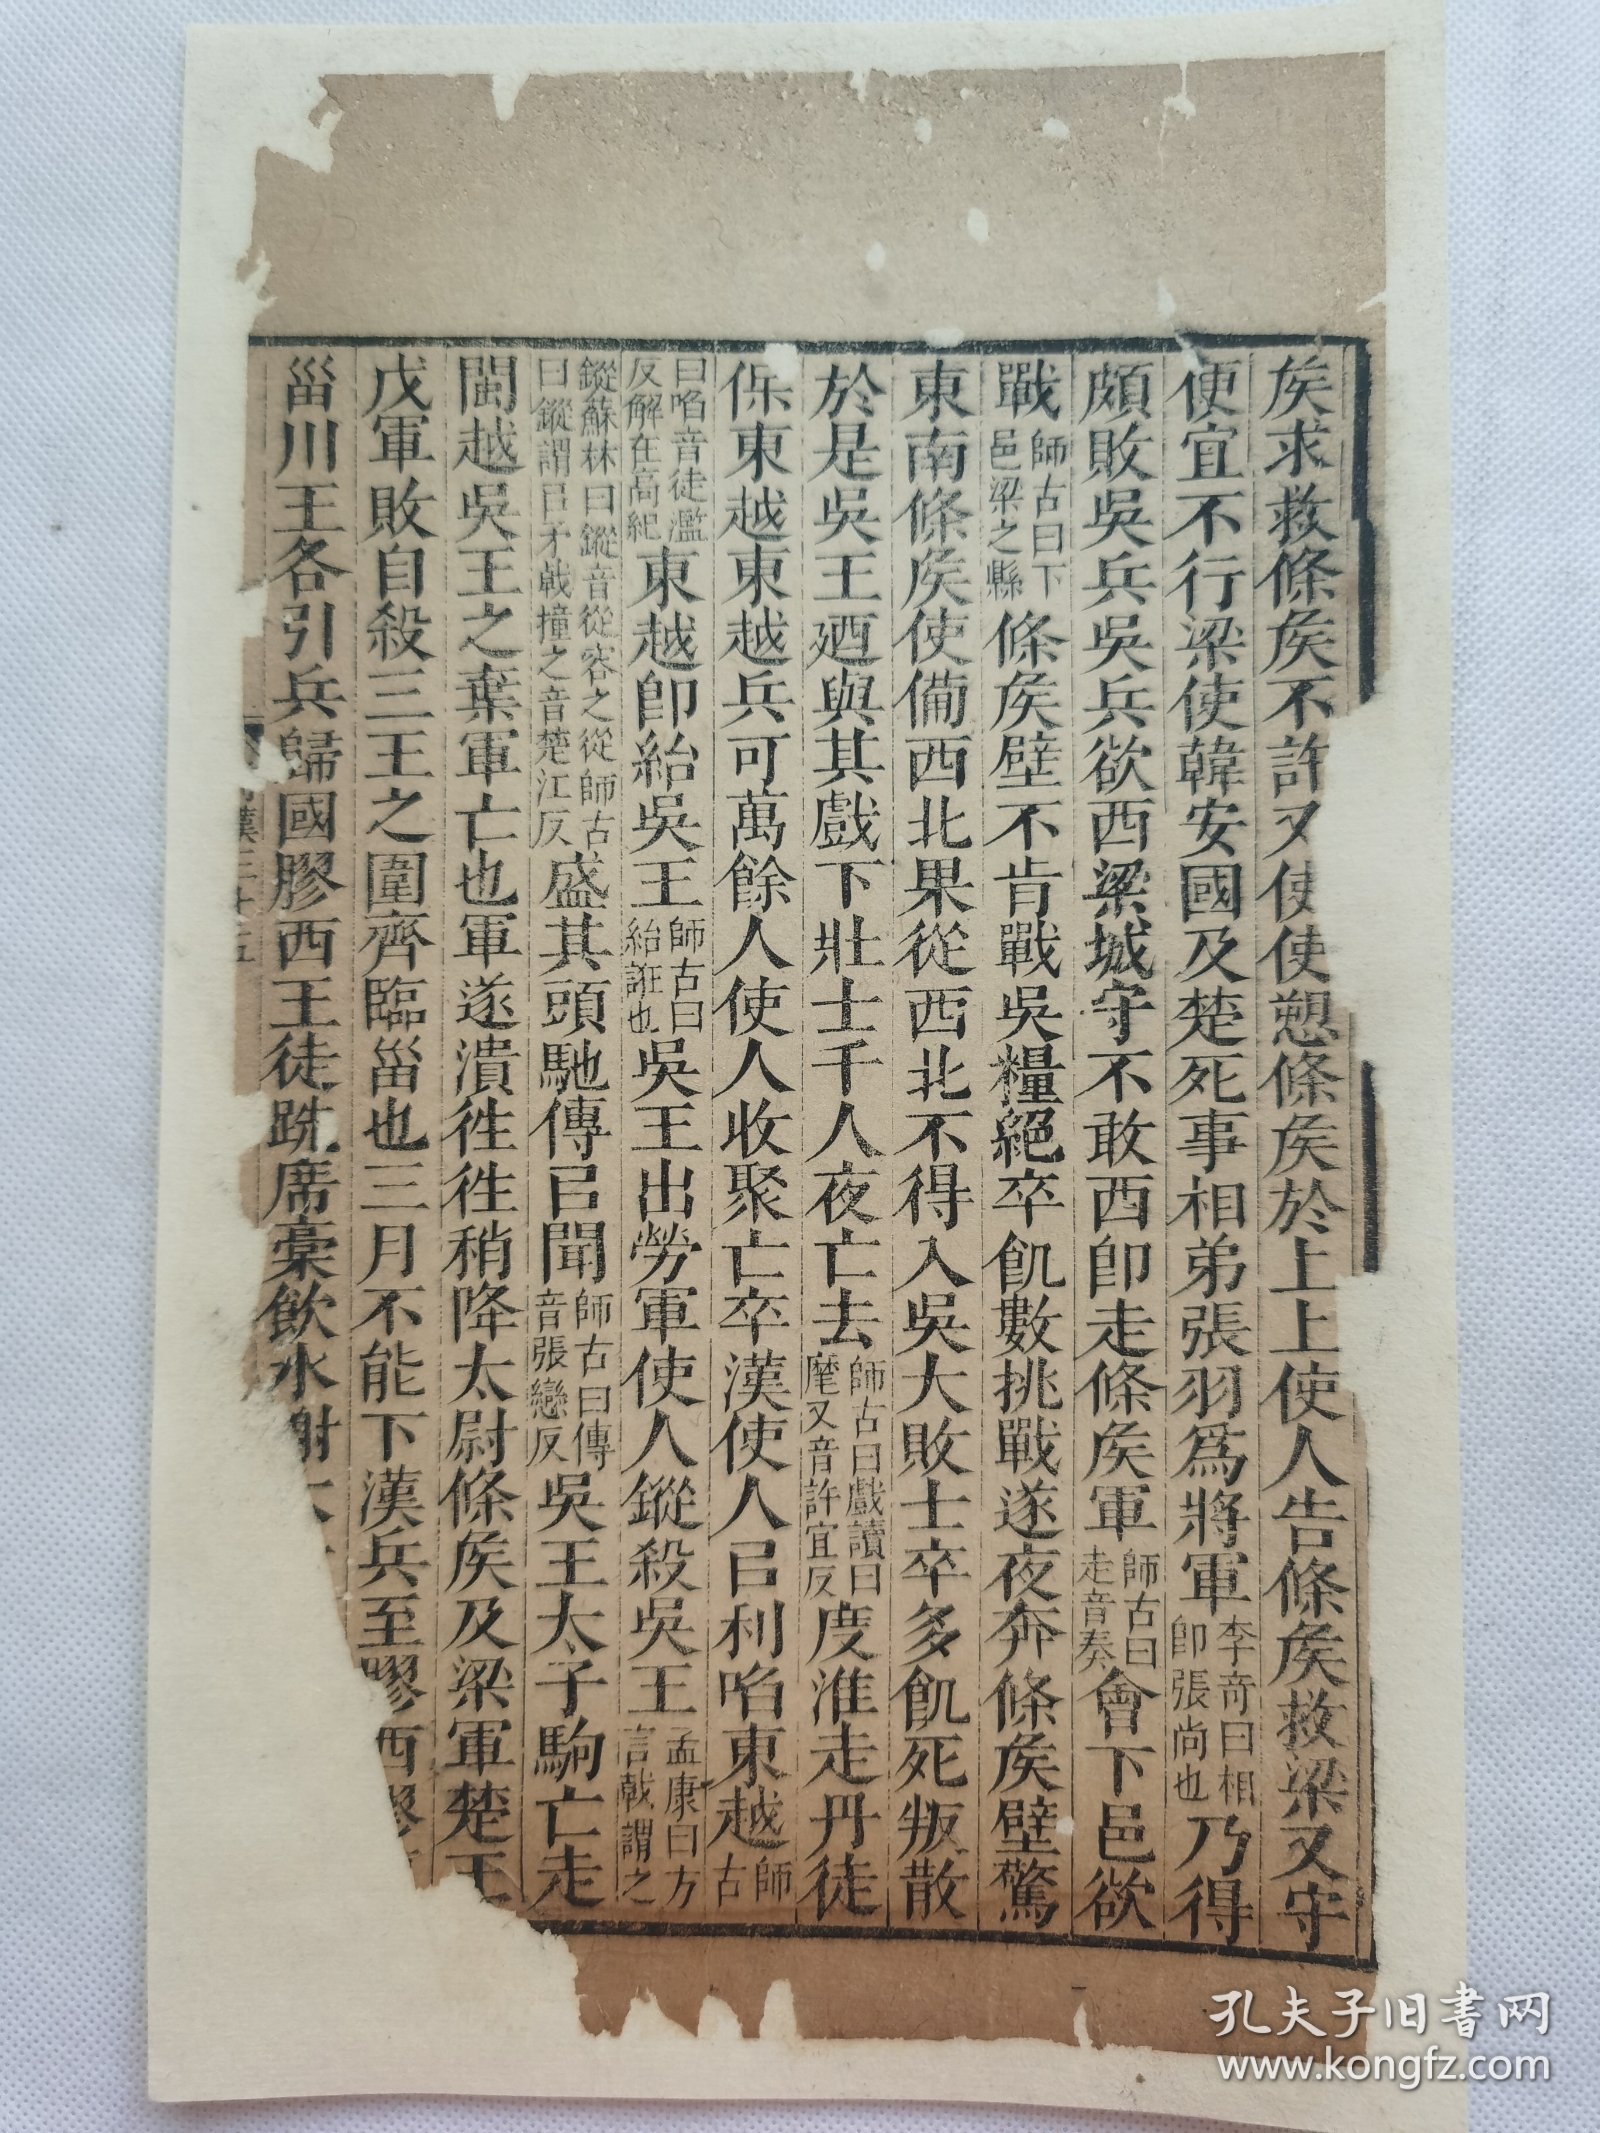 矦求救條矦不許又使使愬條矦於上上使人告條矦救梁又守
便宜不行梁使韓安國及楚死事相弟張羽爲將軍李奇曰相卽張尚也乃得
頗敗吳兵吳兵欲西梁城守不敢西卽走條矦軍師古曰走音奏會下邑欲
戰師古曰下邑梁之縣條矦壁不肯戰吳糧絕卒飢數挑戰遂夜奔條矦壁驚
東南條矦使備西北果從西北不得入吳大敗士卒多飢死叛散
於是吳王廼與其戲下壯士千人夜亡去師古曰戲讀曰麾又音許宜反度淮走丹徒
保東越東越兵可萬餘人使人收聚亡卒漢使人㠯利啗東越師古
曰啗音徒濫反解在高紀東越卽紿吳王師古曰紿誑也吳王出勞軍使人鏦殺吳王孟康曰方言戟謂之
鏦蘇林曰鏦音從容之從師古曰鏦謂㠯矛戟撞之音楚江反盛其頭馳傳㠯聞師古曰傳音張戀反吳王太子駒亡走
閩越吳王之棄軍亡也軍遂潰徃徃稍降太尉條矦及梁軍楚王
戊軍敗自殺三王之圍齊臨甾也三月不能下漢兵至膠西膠
甾川王各引兵歸國膠西王徒跣席槀飲水謝
漢三十五
孔夫子旧书网
www.kongfz.com